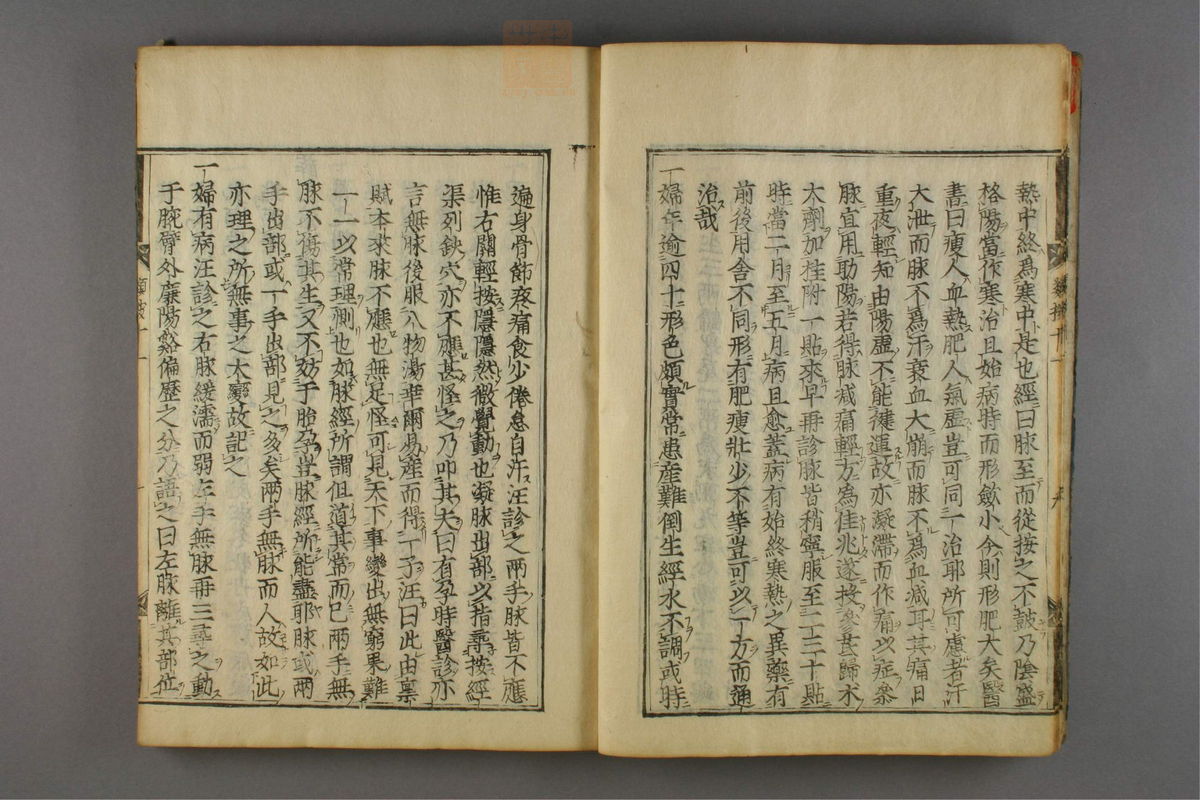 熱中終爲寒中是也經曰脉至而從按之不鼓乃陰盛
格陽當作寒治且始病時而形歛小今則形肥大矣醫
書曰瘦人血熱肥人氣虚豈可同一治耶所可慮者汗
大泄而脉不爲汗衰血大崩而脉不爲血减耳其痛日
重夜輕知由陽虚不能健運故亦凝滯而作痛以症象
脉宜用助陽若得脉减痛輕方為佳兆遂投參芪歸朮
大劑加桂附一貼來早再診脉皆稍寧服至二三十貼
時當二月至五月病且愈蓋病有始終寒熱之異藥有
前後用舍不同形有肥瘦壯少不等豈可以一方而通
治哉
一婦年逾四十形色頗實常患産難倒生經水不調或時
遍身骨節疼痛食少倦怠自汗汪診之兩手脉皆不應
惟右關輕按隱隱然微覺動也凝脉出部以指尋按經
渠列鈌穴亦不應甚怪之乃叩其夫曰有孕時醫診亦
言無脉後服八物湯幸爾易産而得一子汪曰此由禀
賦本來脉不應也無足怪可見天下事變出無窮果難
一一以常理測也如脉經所謂但道其常而已兩手無
脉不傷其生又不妨于胎孕豈脉經所能盡耶脉或兩
手出部或一手出部見之多矣兩手無脉而人故如此
亦理之所無事之大變故記之
一婦有病汪診之右脉緩濡而弱左手無脉再三尋之動
于腕臂外廉陽谿偏歴之分乃語之曰左脉離其部位